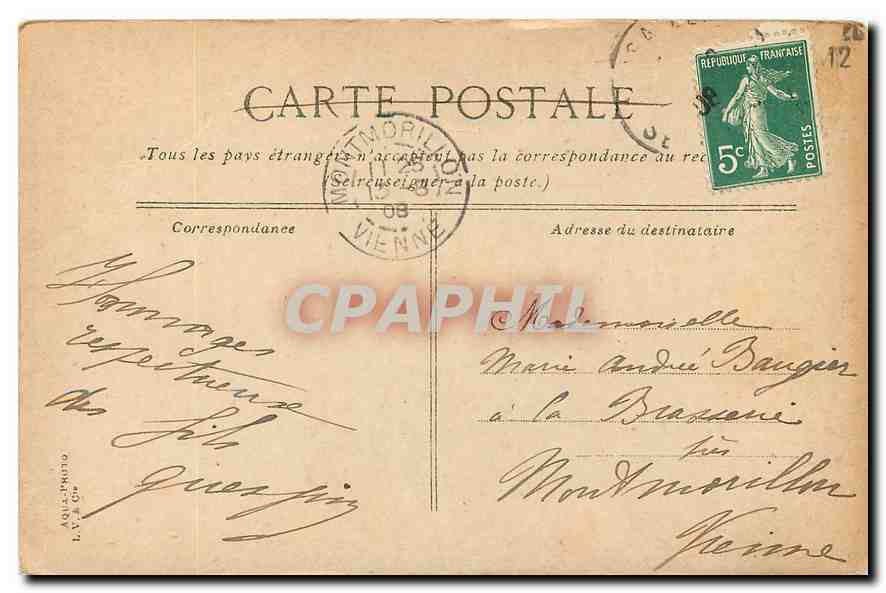 CARTE POSTALE
Tous les pays étrangers n'acceptent pas la correspondance au rec
(Se renseigner à la poste.)
Correspondance
Adresse du destinataire
REPUBLIQUE FRANÇAISE
5c
POSTES
12
08
MONTMORILLON
25
08
VIENNE
CPAPHIL
Hommages
respectueux
des fils
Guespin
Mademoiselle
Marie André Baugier
à la Brasserie
près
Montmorillon
Vienne
AQUA-PHOTO
L. V. & Cie